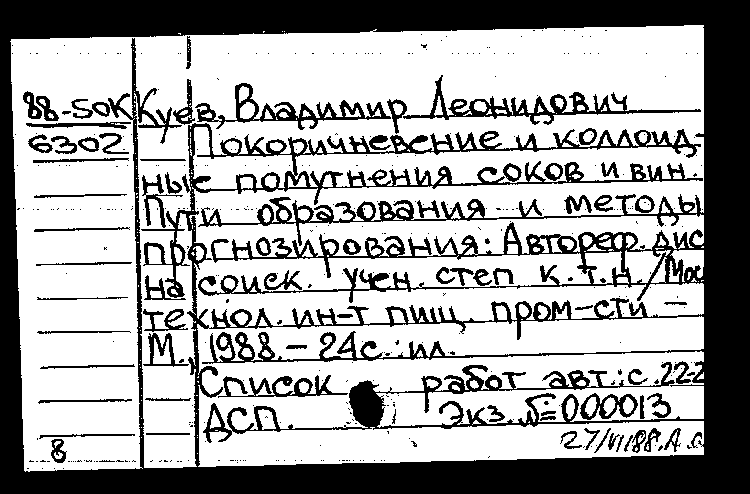 88-5ОК Куев, Владимир Леонидович
6302 Покоричневение и коллоид-
ные помутнения соков и вин.
Пути образования и методы
прогнозирования: Автореф. дис
на соиск. учен. степ к.т.н. / Мос
технол. ин-т пищ. пром-сти. –
М., 1988. – 24с.: ил.
Список работ авт.: с. 22-2
ДСП. Экз. №000013.
8 27/VI 88. А.